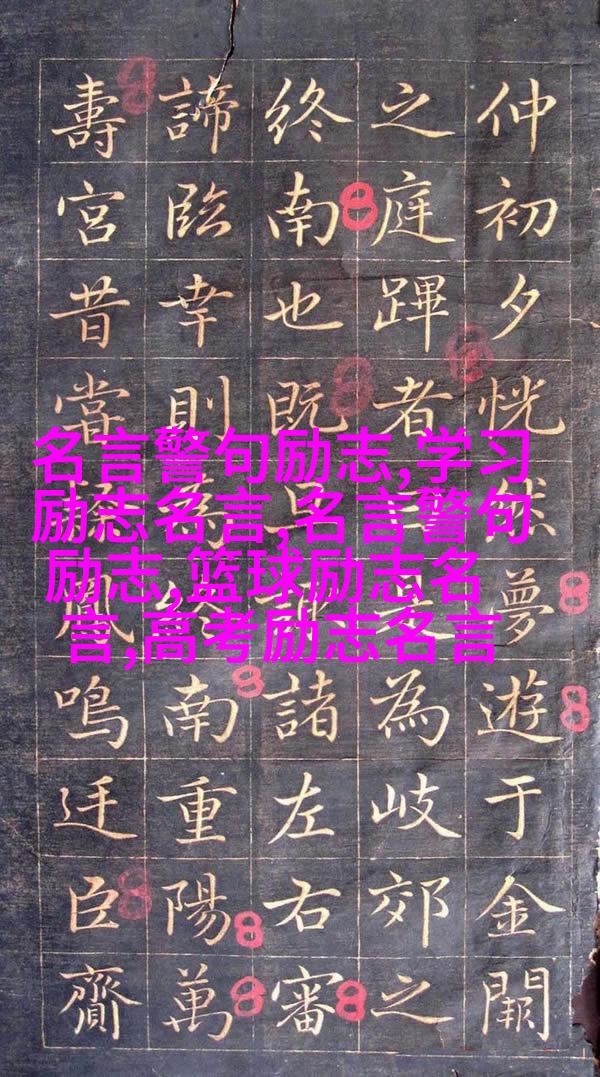 仲初夕恍然夢遊于金闕
之庭蹕者為岐郊之
終南也既上諸左右審
諦臨幸則為終南重陽萬
壽宮昔當鳳鳴廷臣齎
名言警句励志,学习
励志名言,名言警句
励志,篮球励志名
言,高考励志名言